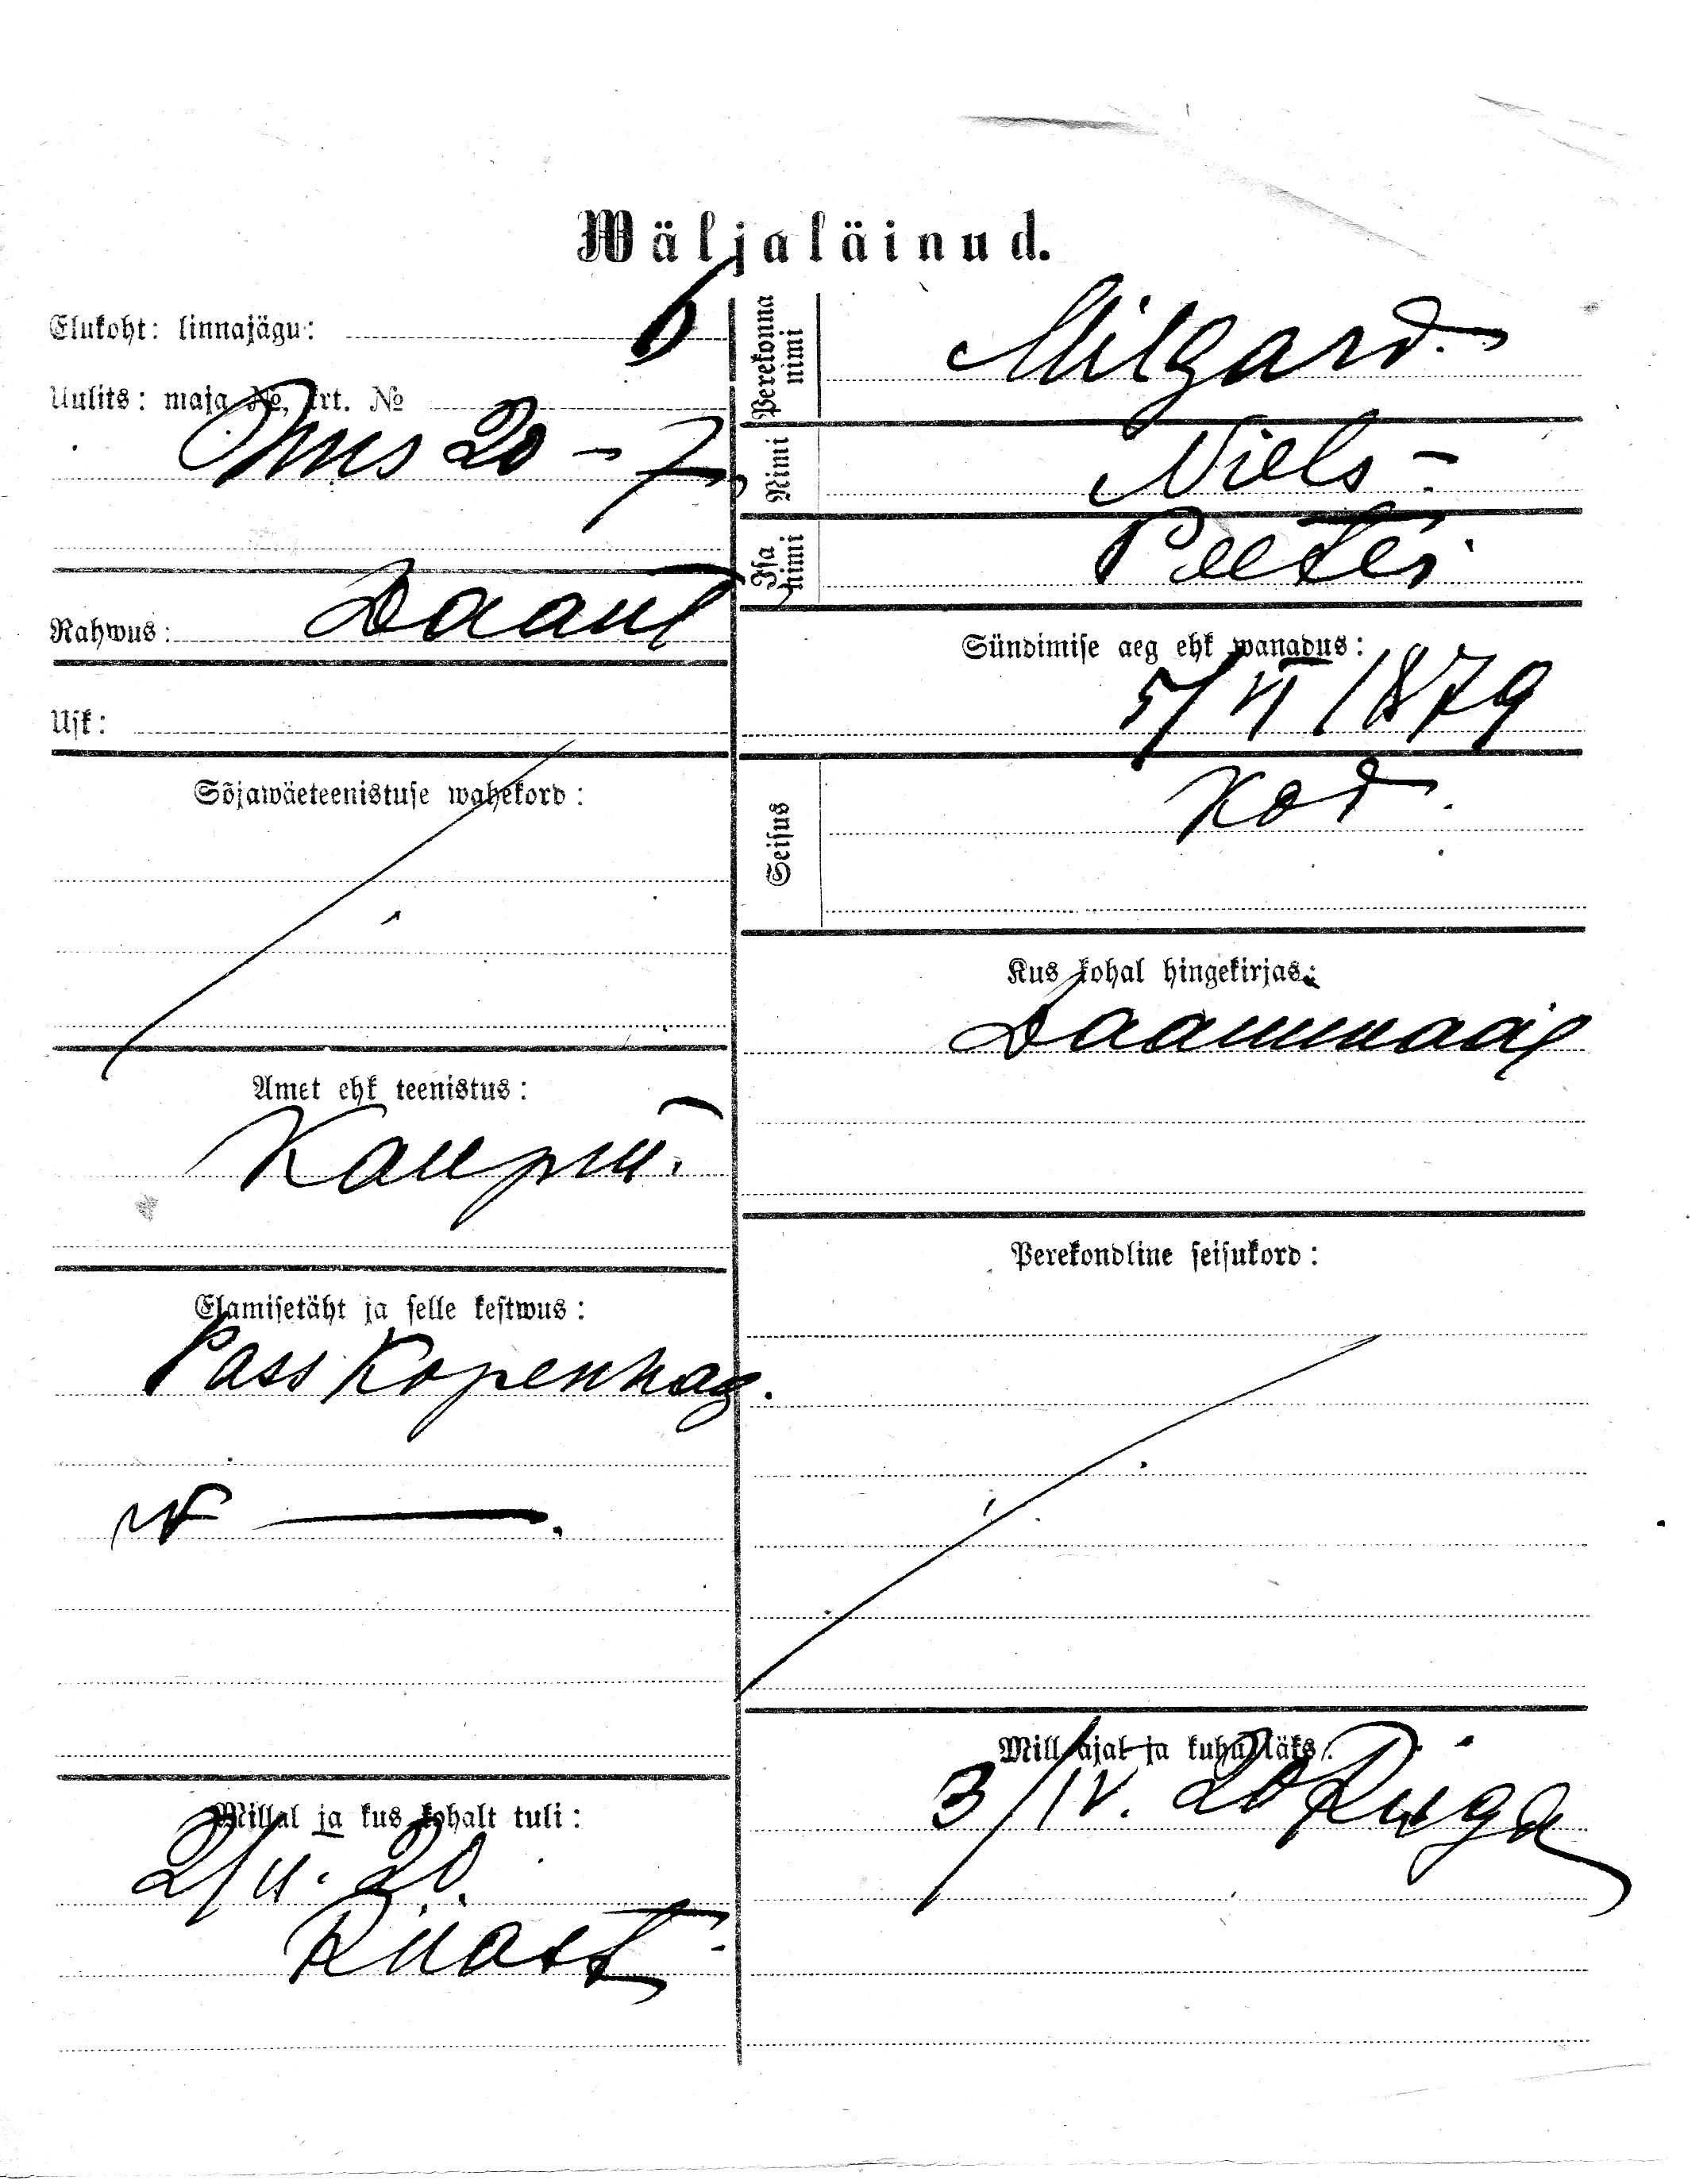 Wäljaläinud.
Elukoht: linnajägu: 6
Uulits: maja №, krt. №
20 – 7
Rahwus: Daani
Usk:
Sõjawäeteenistuse wahekord:
Amet ehk teenistus:
Kaupm.
Elamisetäht ja selle kestwus:
Pass Kopenhag.
Millal ja kus kohalt tuli:
2/II. 20.
Perekonna nimi Milgard
Nimi Niels
Isa nimi Peeter
Sündimise aeg ehk wanadus:
5/VI 1879
Seisus Kod.
Kus kohal hingekirjas:
Daanimaal
Perekondline seisukord:
Mill ajal ja kuhu läks:
3/IV. 20 Riiga